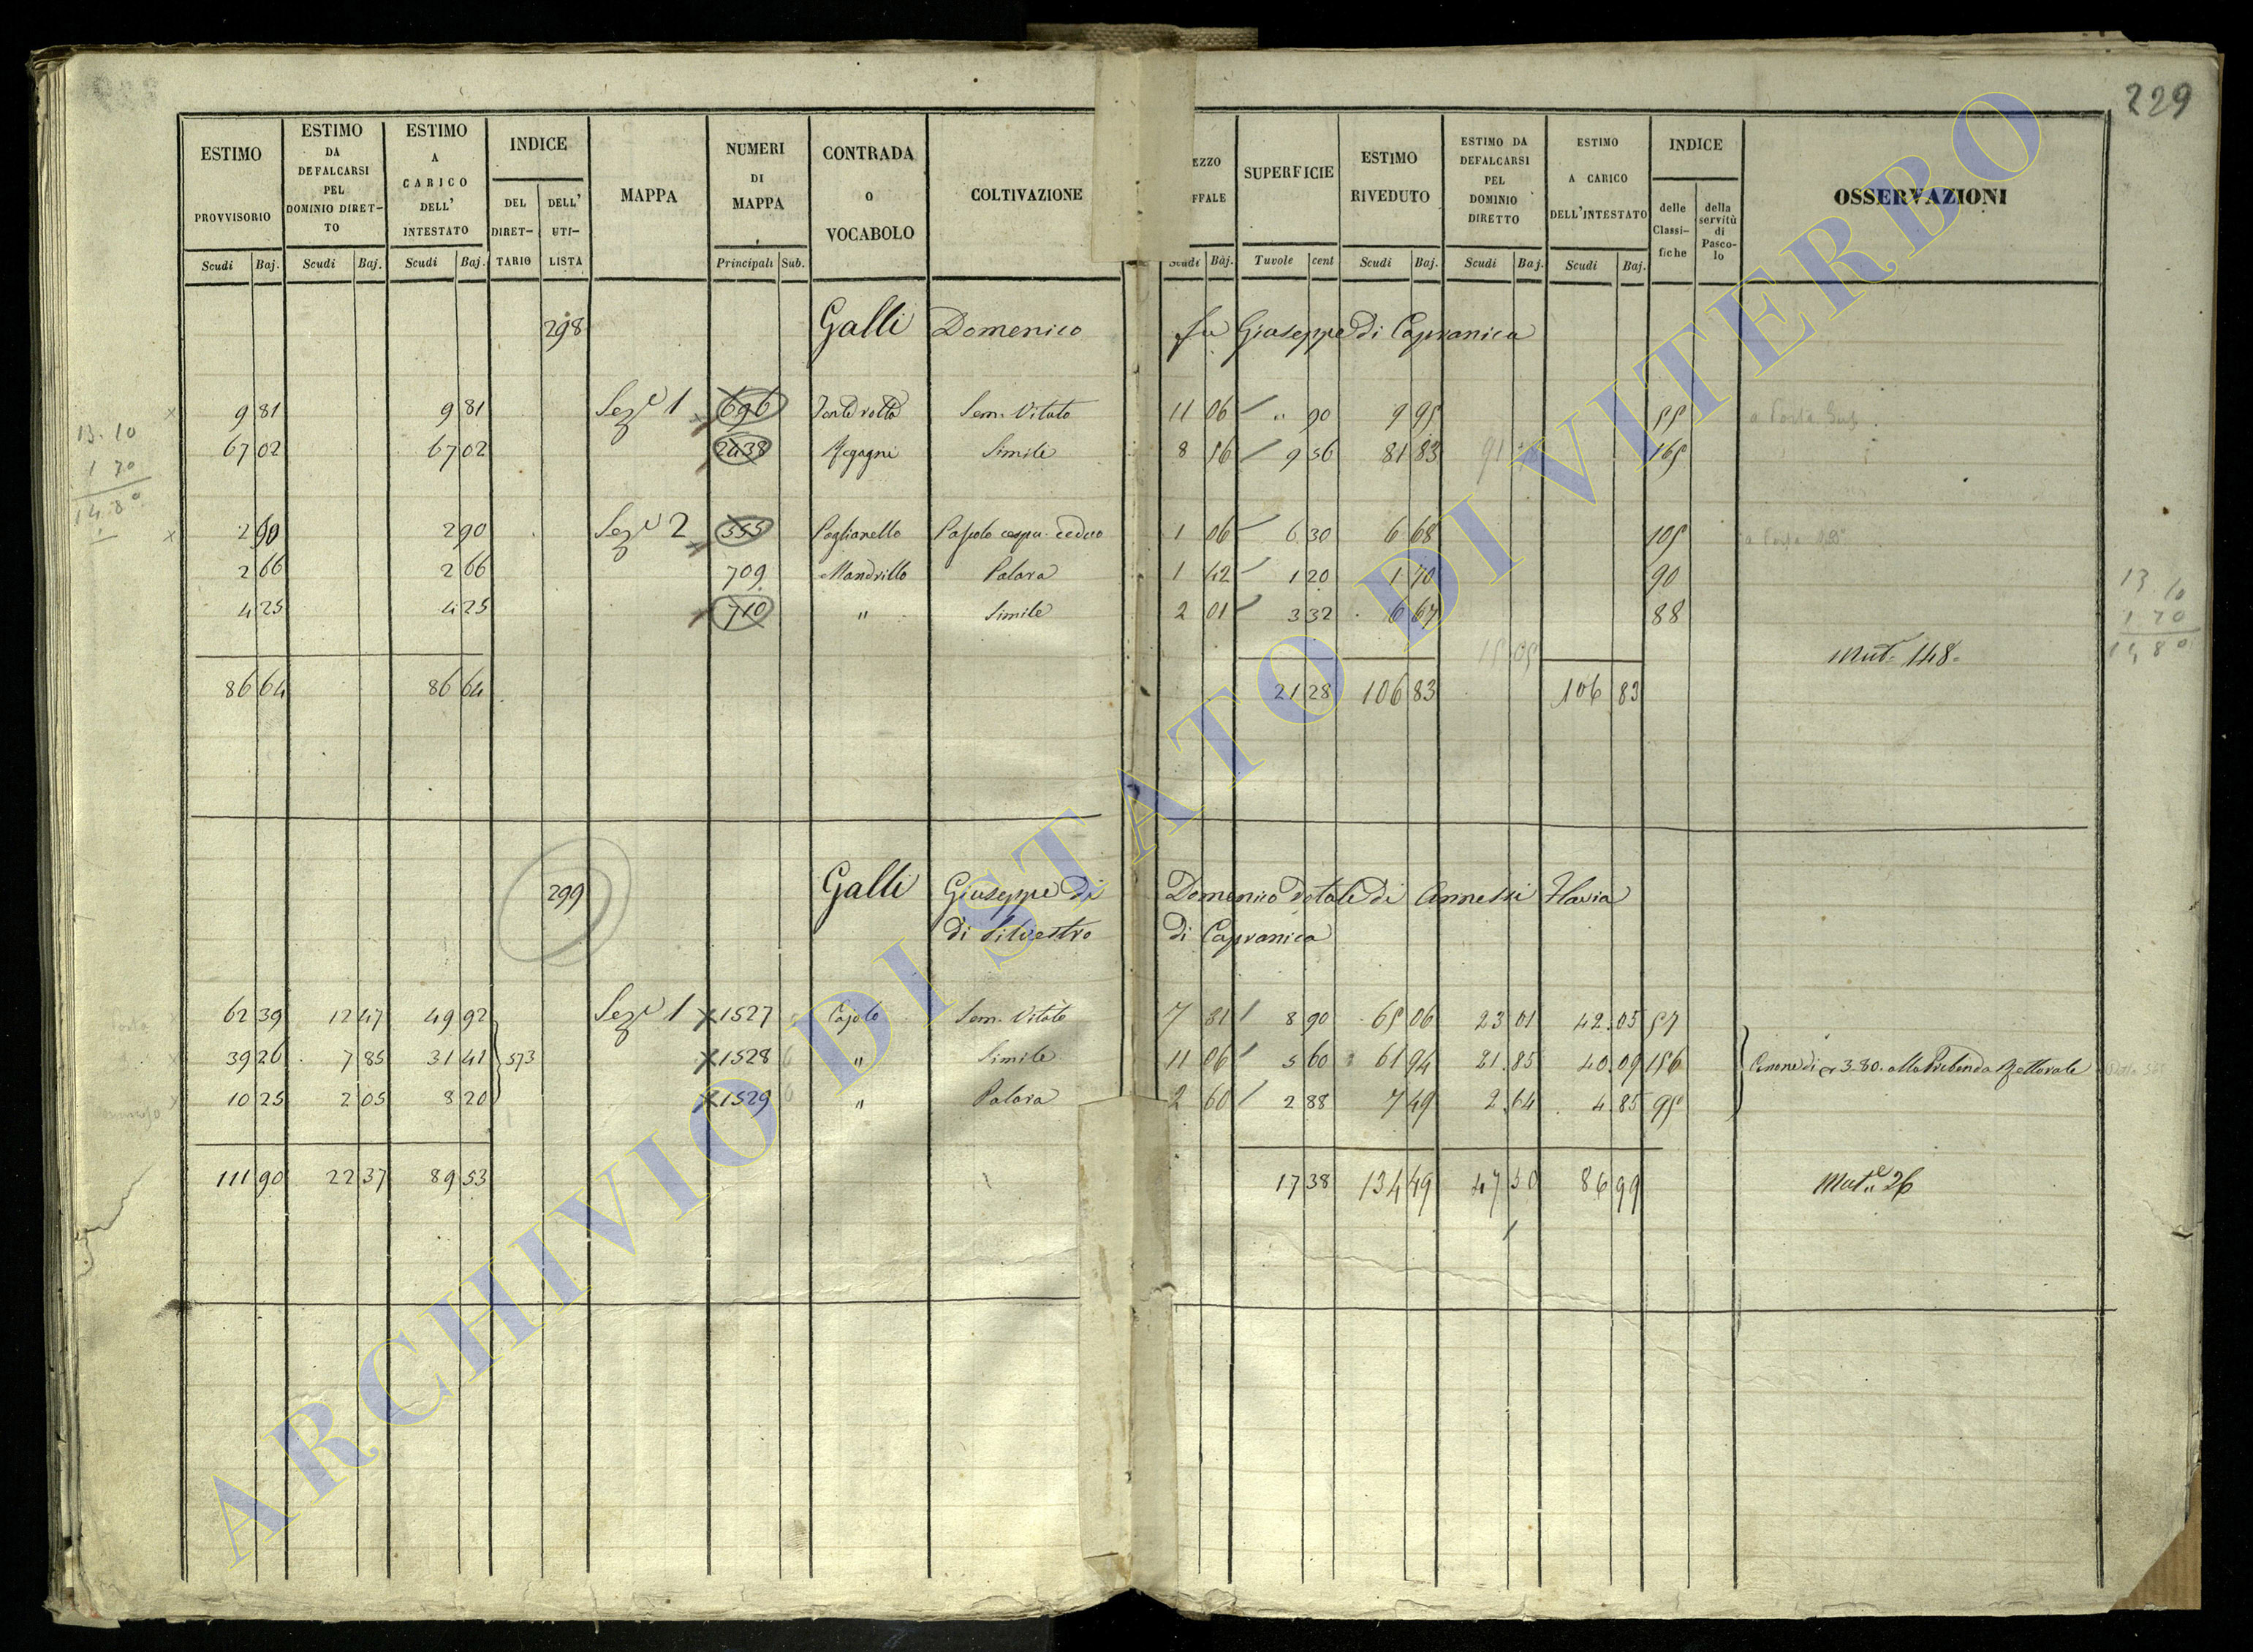 229
ESTIMO PROVVISORIO
ESTIMO DA DEFALCARSI PEL DOMINIO DIRET-TO
ESTIMO A CARICO DELL' INTESTATO
INDICE
DEL DIRET-TARIO
DELL' UTI-LISTA
MAPPA
NUMERI DI MAPPA
CONTRADA o VOCABOLO
COLTIVAZIONE
EZZO FFALE
SUPERFICIE
ESTIMO RIVEDUTO
ESTIMO DA DEFALCARSI PEL DOMINIO DIRETTO
ESTIMO A CARICO DELL'INTESTATO
INDICE
delle Classi-fiche
della servitù di Pasco-lo
OSSERVAZIONI
Scudi Baj. Scudi Baj. Scudi Baj. Principali Sub. Scudi Baj. Tuvole cent Scudi Baj. Scudi Baj. Scudi Baj.
298 Galli Domenico fu Giuseppe di Capranica
9 81 9 81 Sez.e 1 696 Sem. Vitato 11 06 " 90 9 95 55
67 02 67 02 2438 Simile 8 56 9 56 81 83 165
2 90 2 90 Sez.e 2 555 Poglianello 1 06 6 30 6 68 105
2 66 2 66 709 Mandrillo Palara 1 42 1 20 1 70 90
4 25 4 25 710 " Simile 2 01 3 32 6 67 88
Mut. 148.
86 64 86 64 21 28 106 83 106 83
13.10
1 70
14.80
13.10
1 70
14,80
299 Galli Giuseppe di Domenico dotale di Annessi Flavia
di Silvestro di Capranica
62 39 12 47 49 92 Sez.e 1 1527 Cajolo Sem. Vitato 7 31 8 90 65 06 23 01 42.05 57
39 26 7 85 31 41 573 1528 " Simile 11 06 5 60 61 94 21.85 40.09 156 Canone di 3.80. alla Prebenda Rettorale
10 25 2 05 8 20 1529 " Palara 2 60 2 88 7 49 2.64 4.85 95
111 90 22 37 89 53 17 38 134 49 47 50 86 99 Mut.e 26
ARCHIVIO DI STATO DI VITERBO